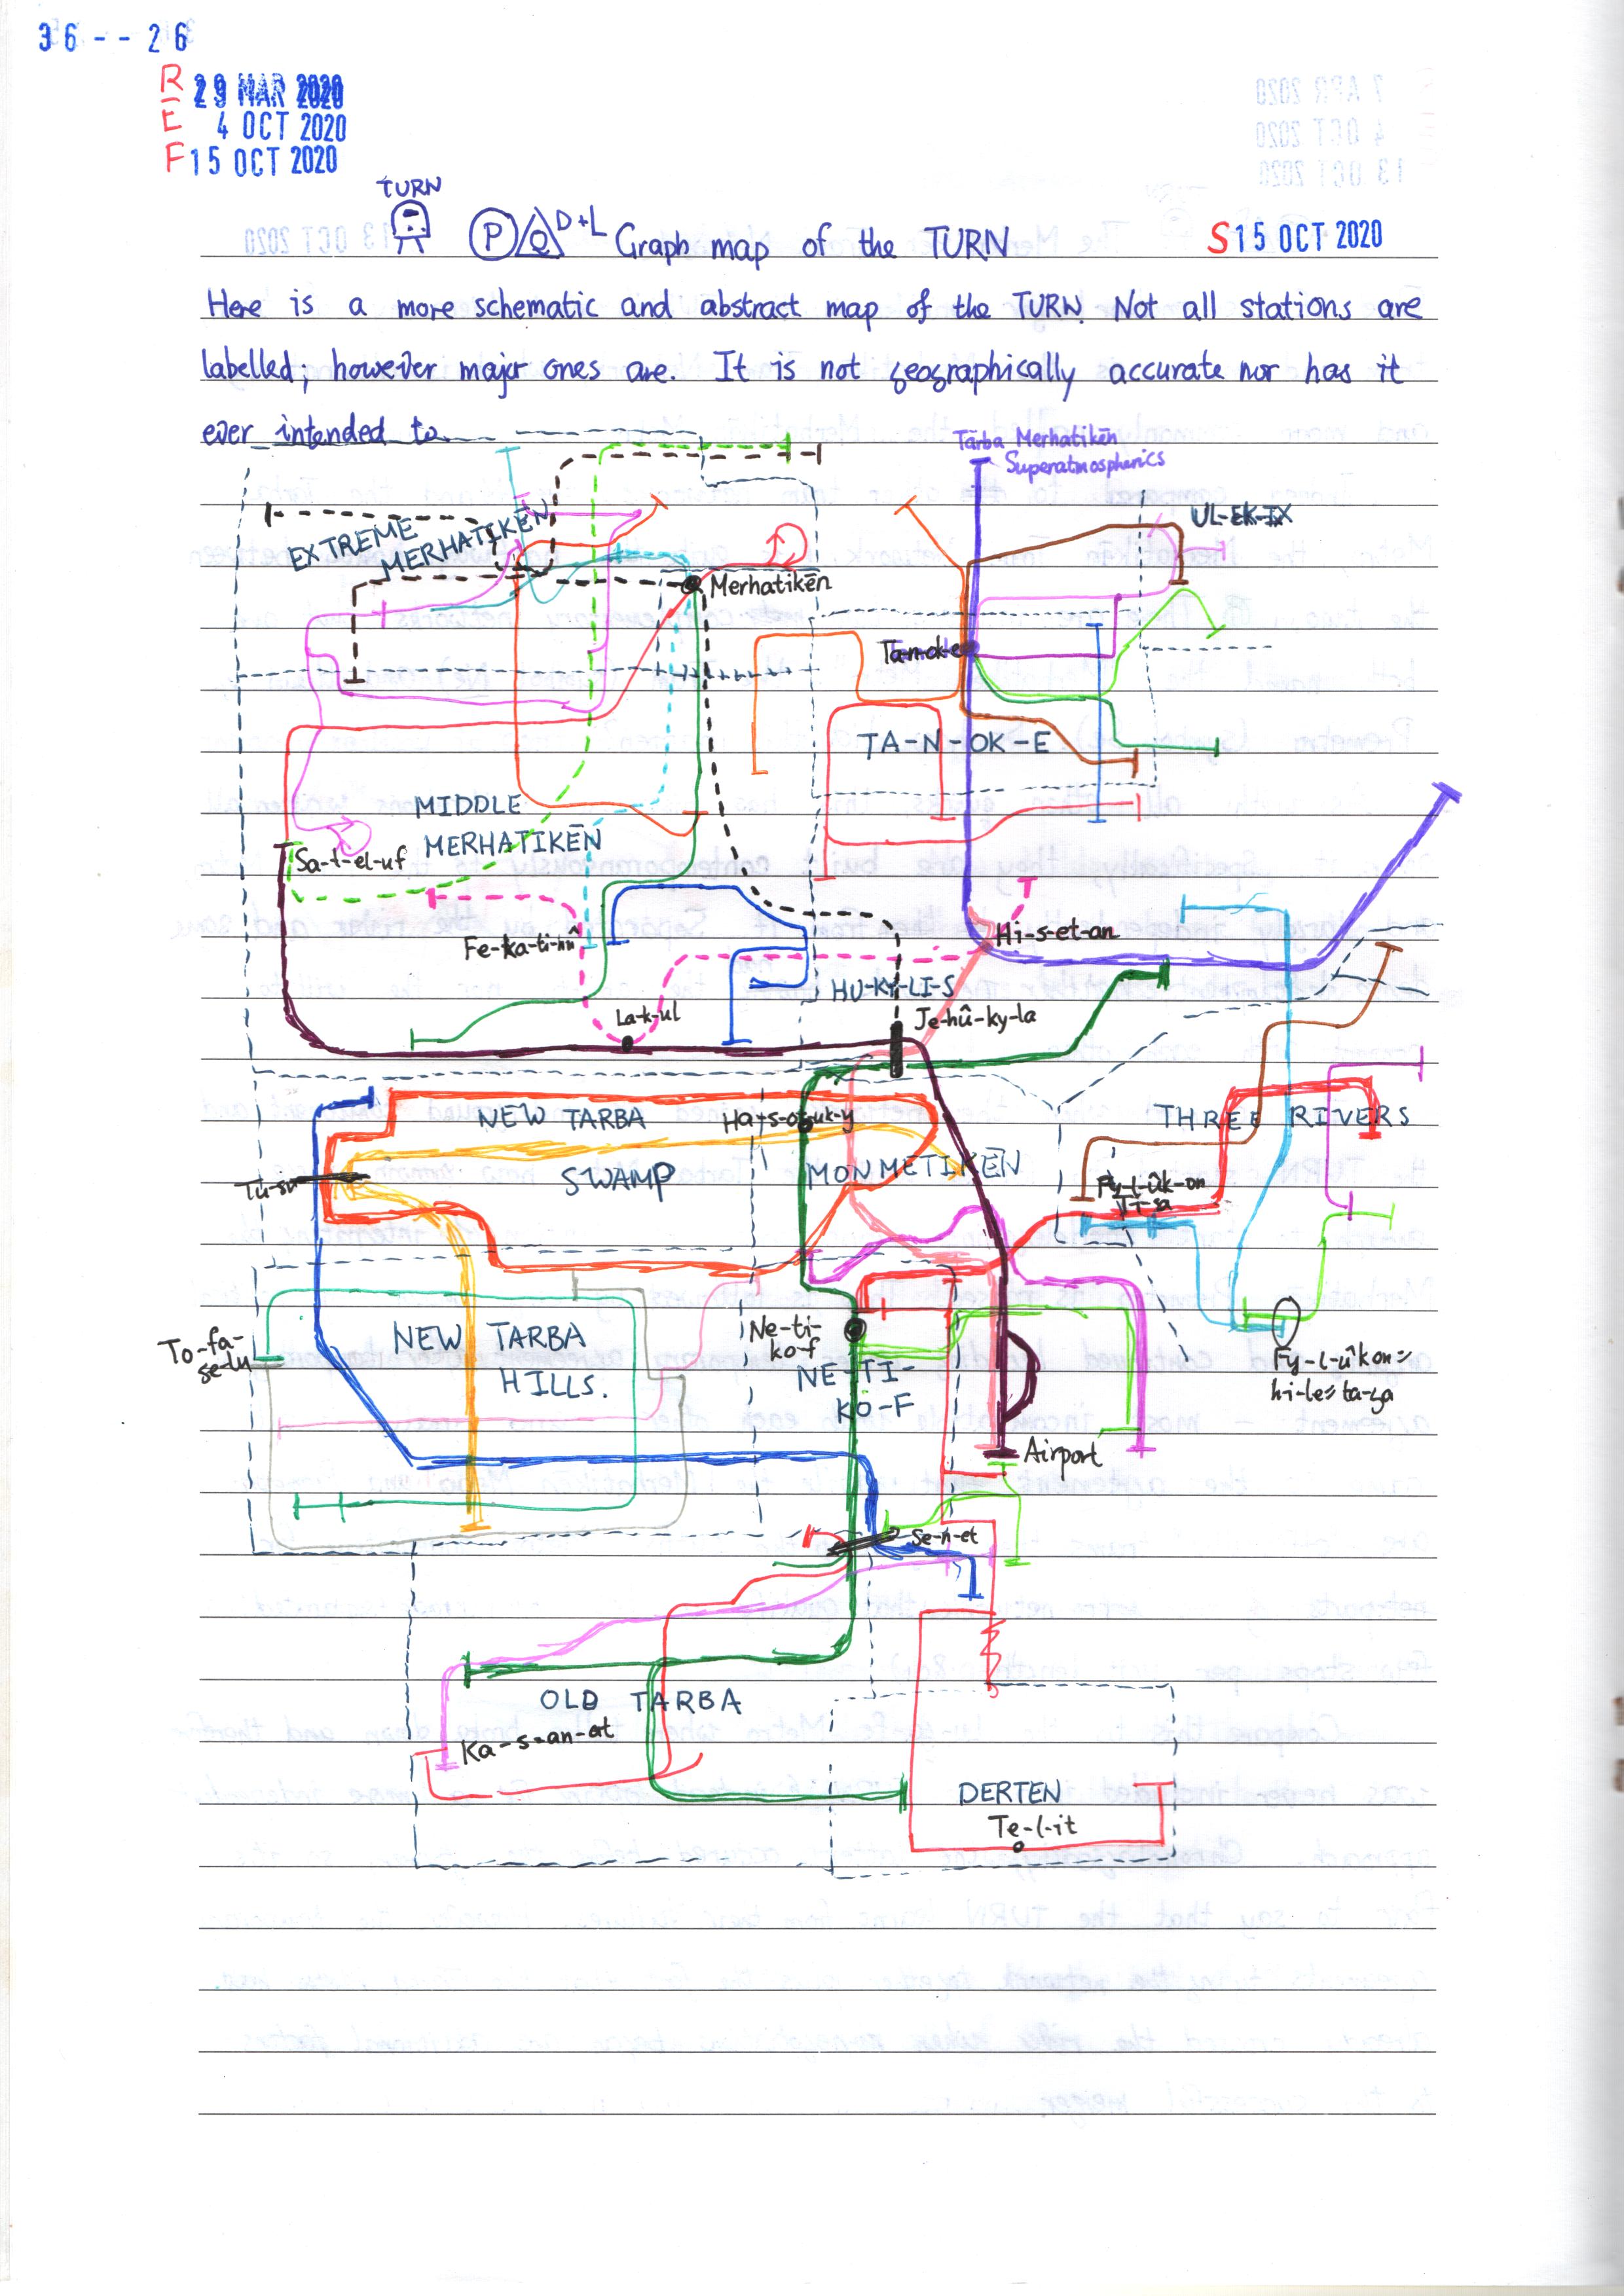 36--26
R 29 MAR 2020
E 4 OCT 2020
F 15 OCT 2020
TURN
P Q D+L Graph map of the TURN
S 15 OCT 2020
Here is a more schematic and abstract map of the TURN. Not all stations are
labelled; however major ones are. It is not geographically accurate nor has it
ever intended to
Tārba Merhatikēn
Superatmospherics
UL-EK-IX
EXTREME
MERHATIKĒN
Merhatikēn
Ta-n-ok-e
TA-N-OK-E
MIDDLE
MERHATIKĒN
Sa-t-el-uf
Fe-ka-ti-hû
Hi-s-et-an
HU-KY-LI-S
La-k-ul
Je-hû-ky-la
NEW TARBA
SWAMP
Ha-s-ok-uk-y
MONMETIKĒN
THREE RIVERS
Tu-su
Fy-l-ûk-on
To-fa-
se-lu
NEW TARBA
HILLS.
Ne-ti-
ko-f
NE-TI-
KO-F
Fy-l-ûkon=
hi-le=ta-ya
Airport
Se-n-et
OLD TARBA
Ka-s-an-et
DERTEN
Te-l-it